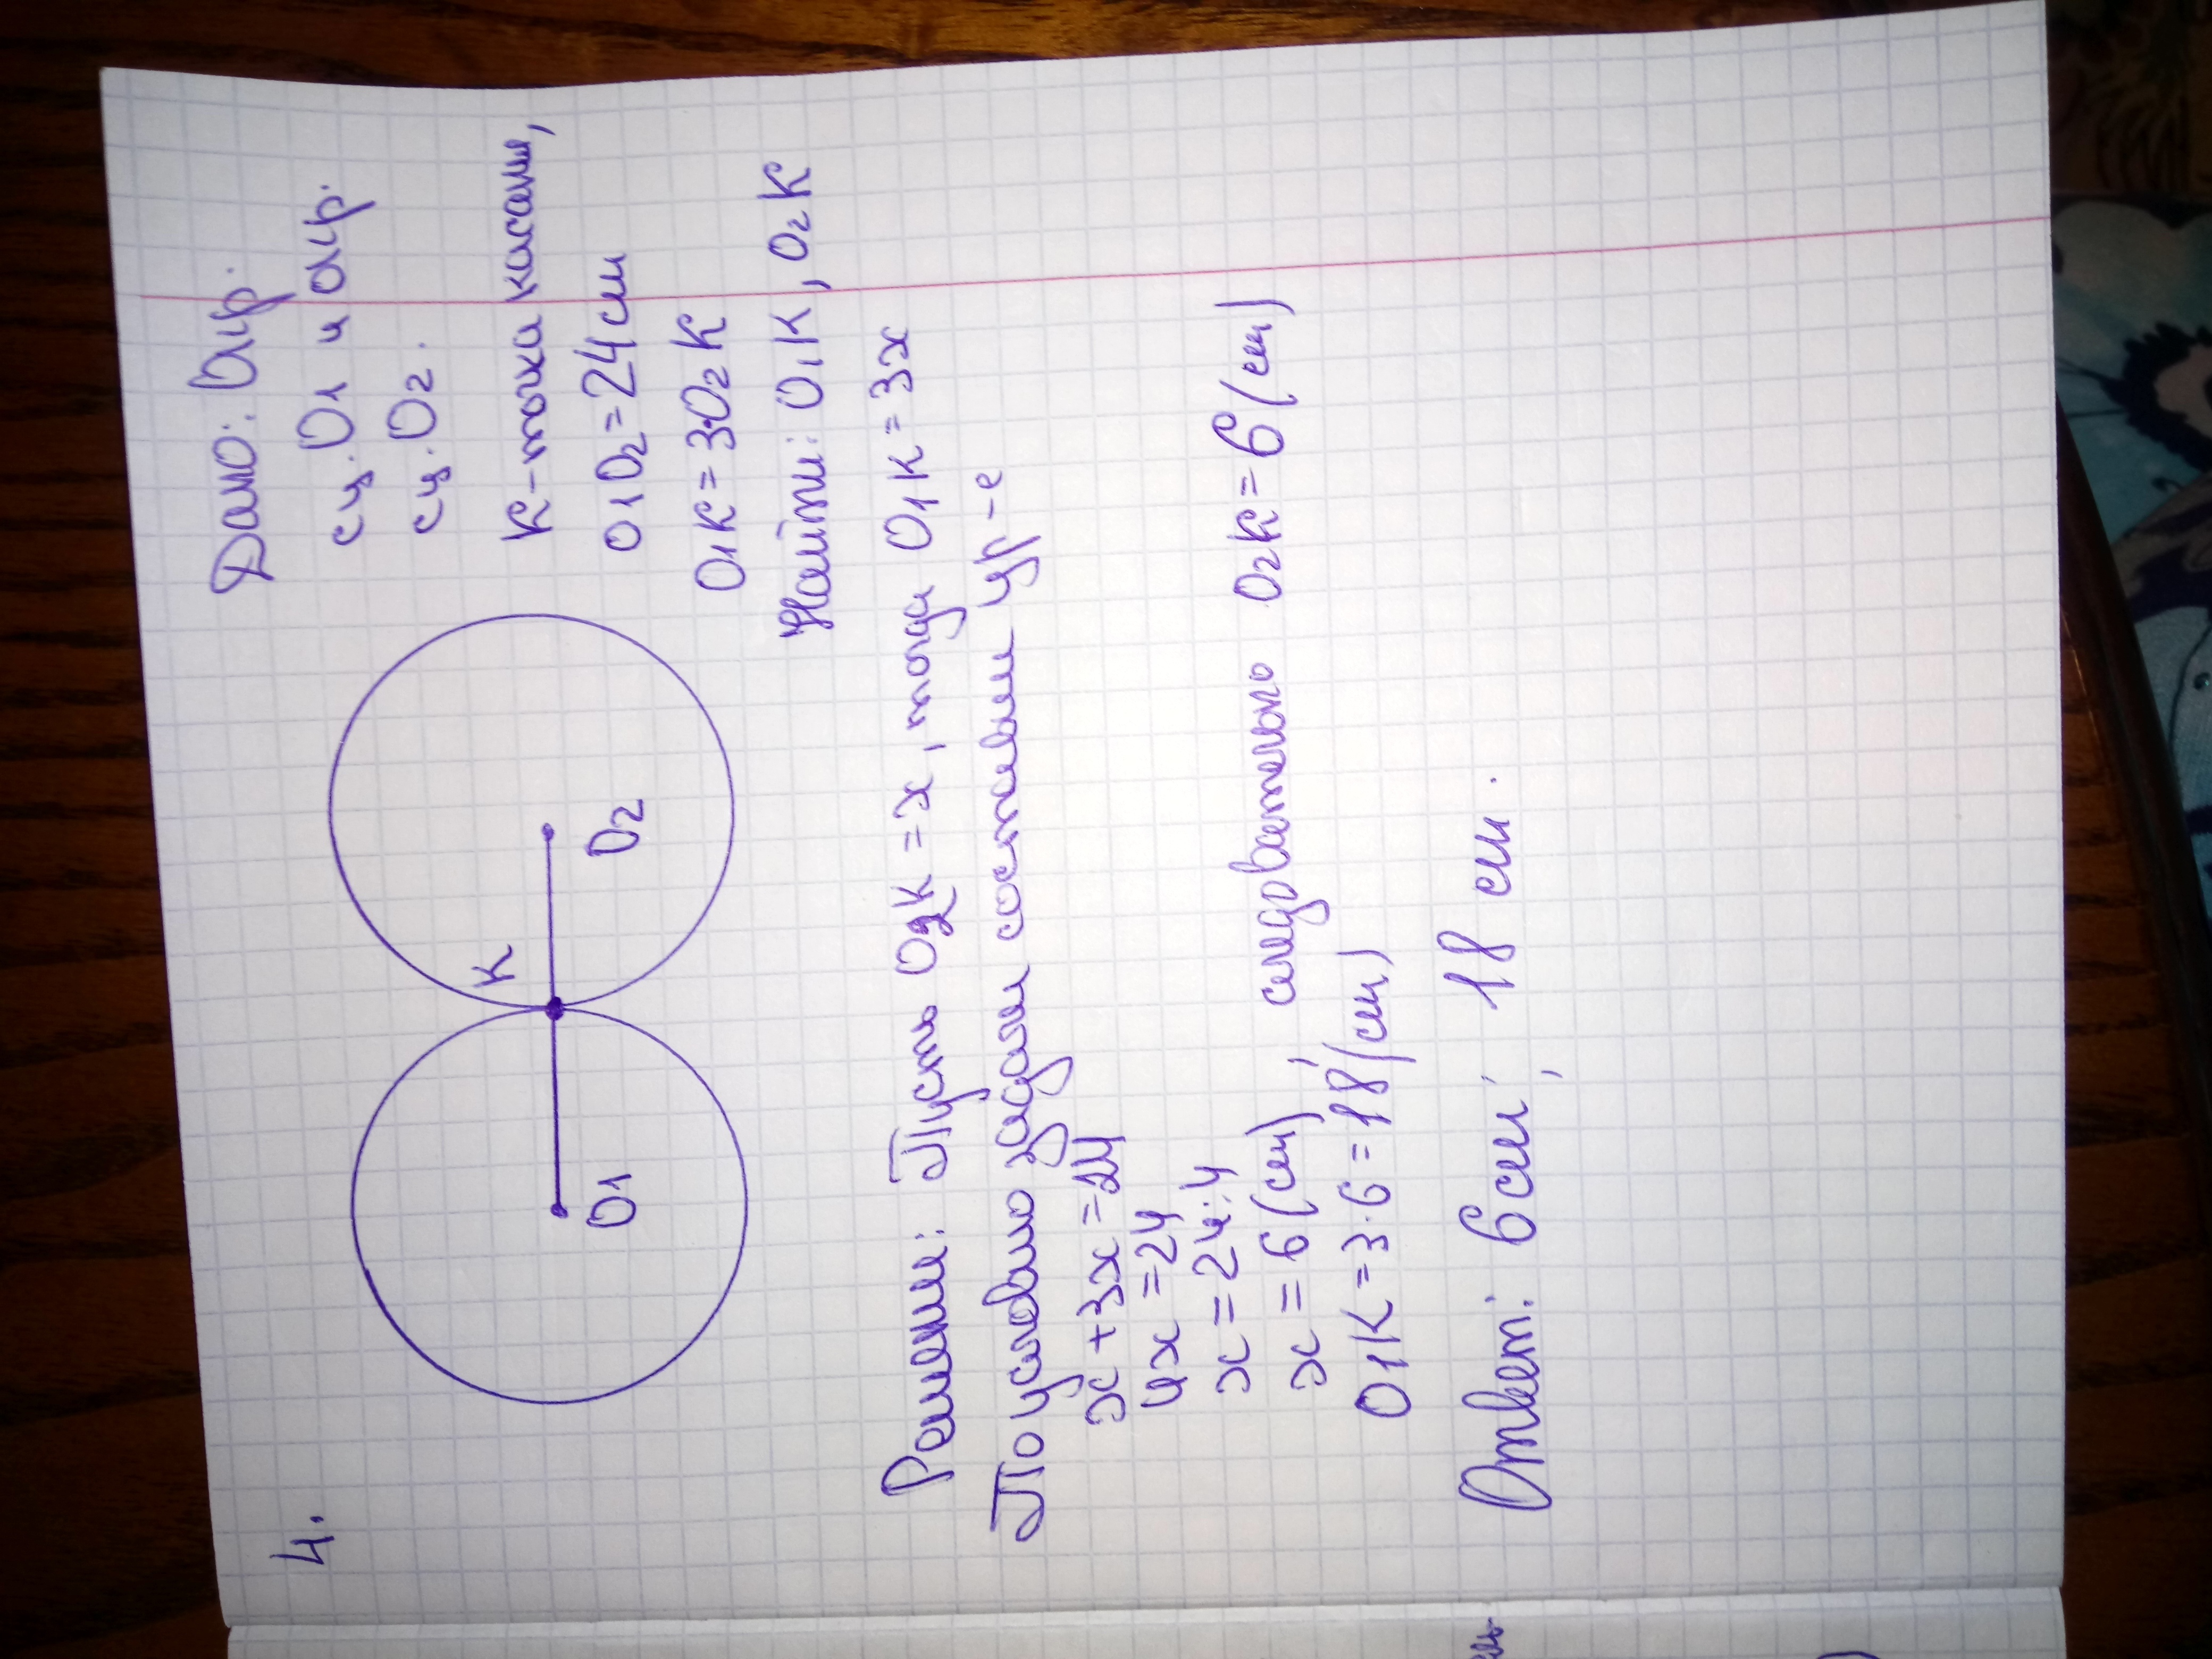 4.
Дано: Окр.
с ц. O1 и окр.
с ц. O2.
K-точка касания,
O1O2=24см
O1K=3O2K
Найти: O1K, O2K
K
O1
O2
Решение: Пусть O2K=x, тогда O1K=3x
По условию задачи составим ур-е
x+3x=24
4x=24
x=24:4
x=6(см), следовательно O2K=6(см)
O1K=3·6=18(см)
Ответ: 6см; 18 см.